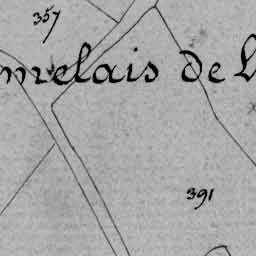 357
melais de
391